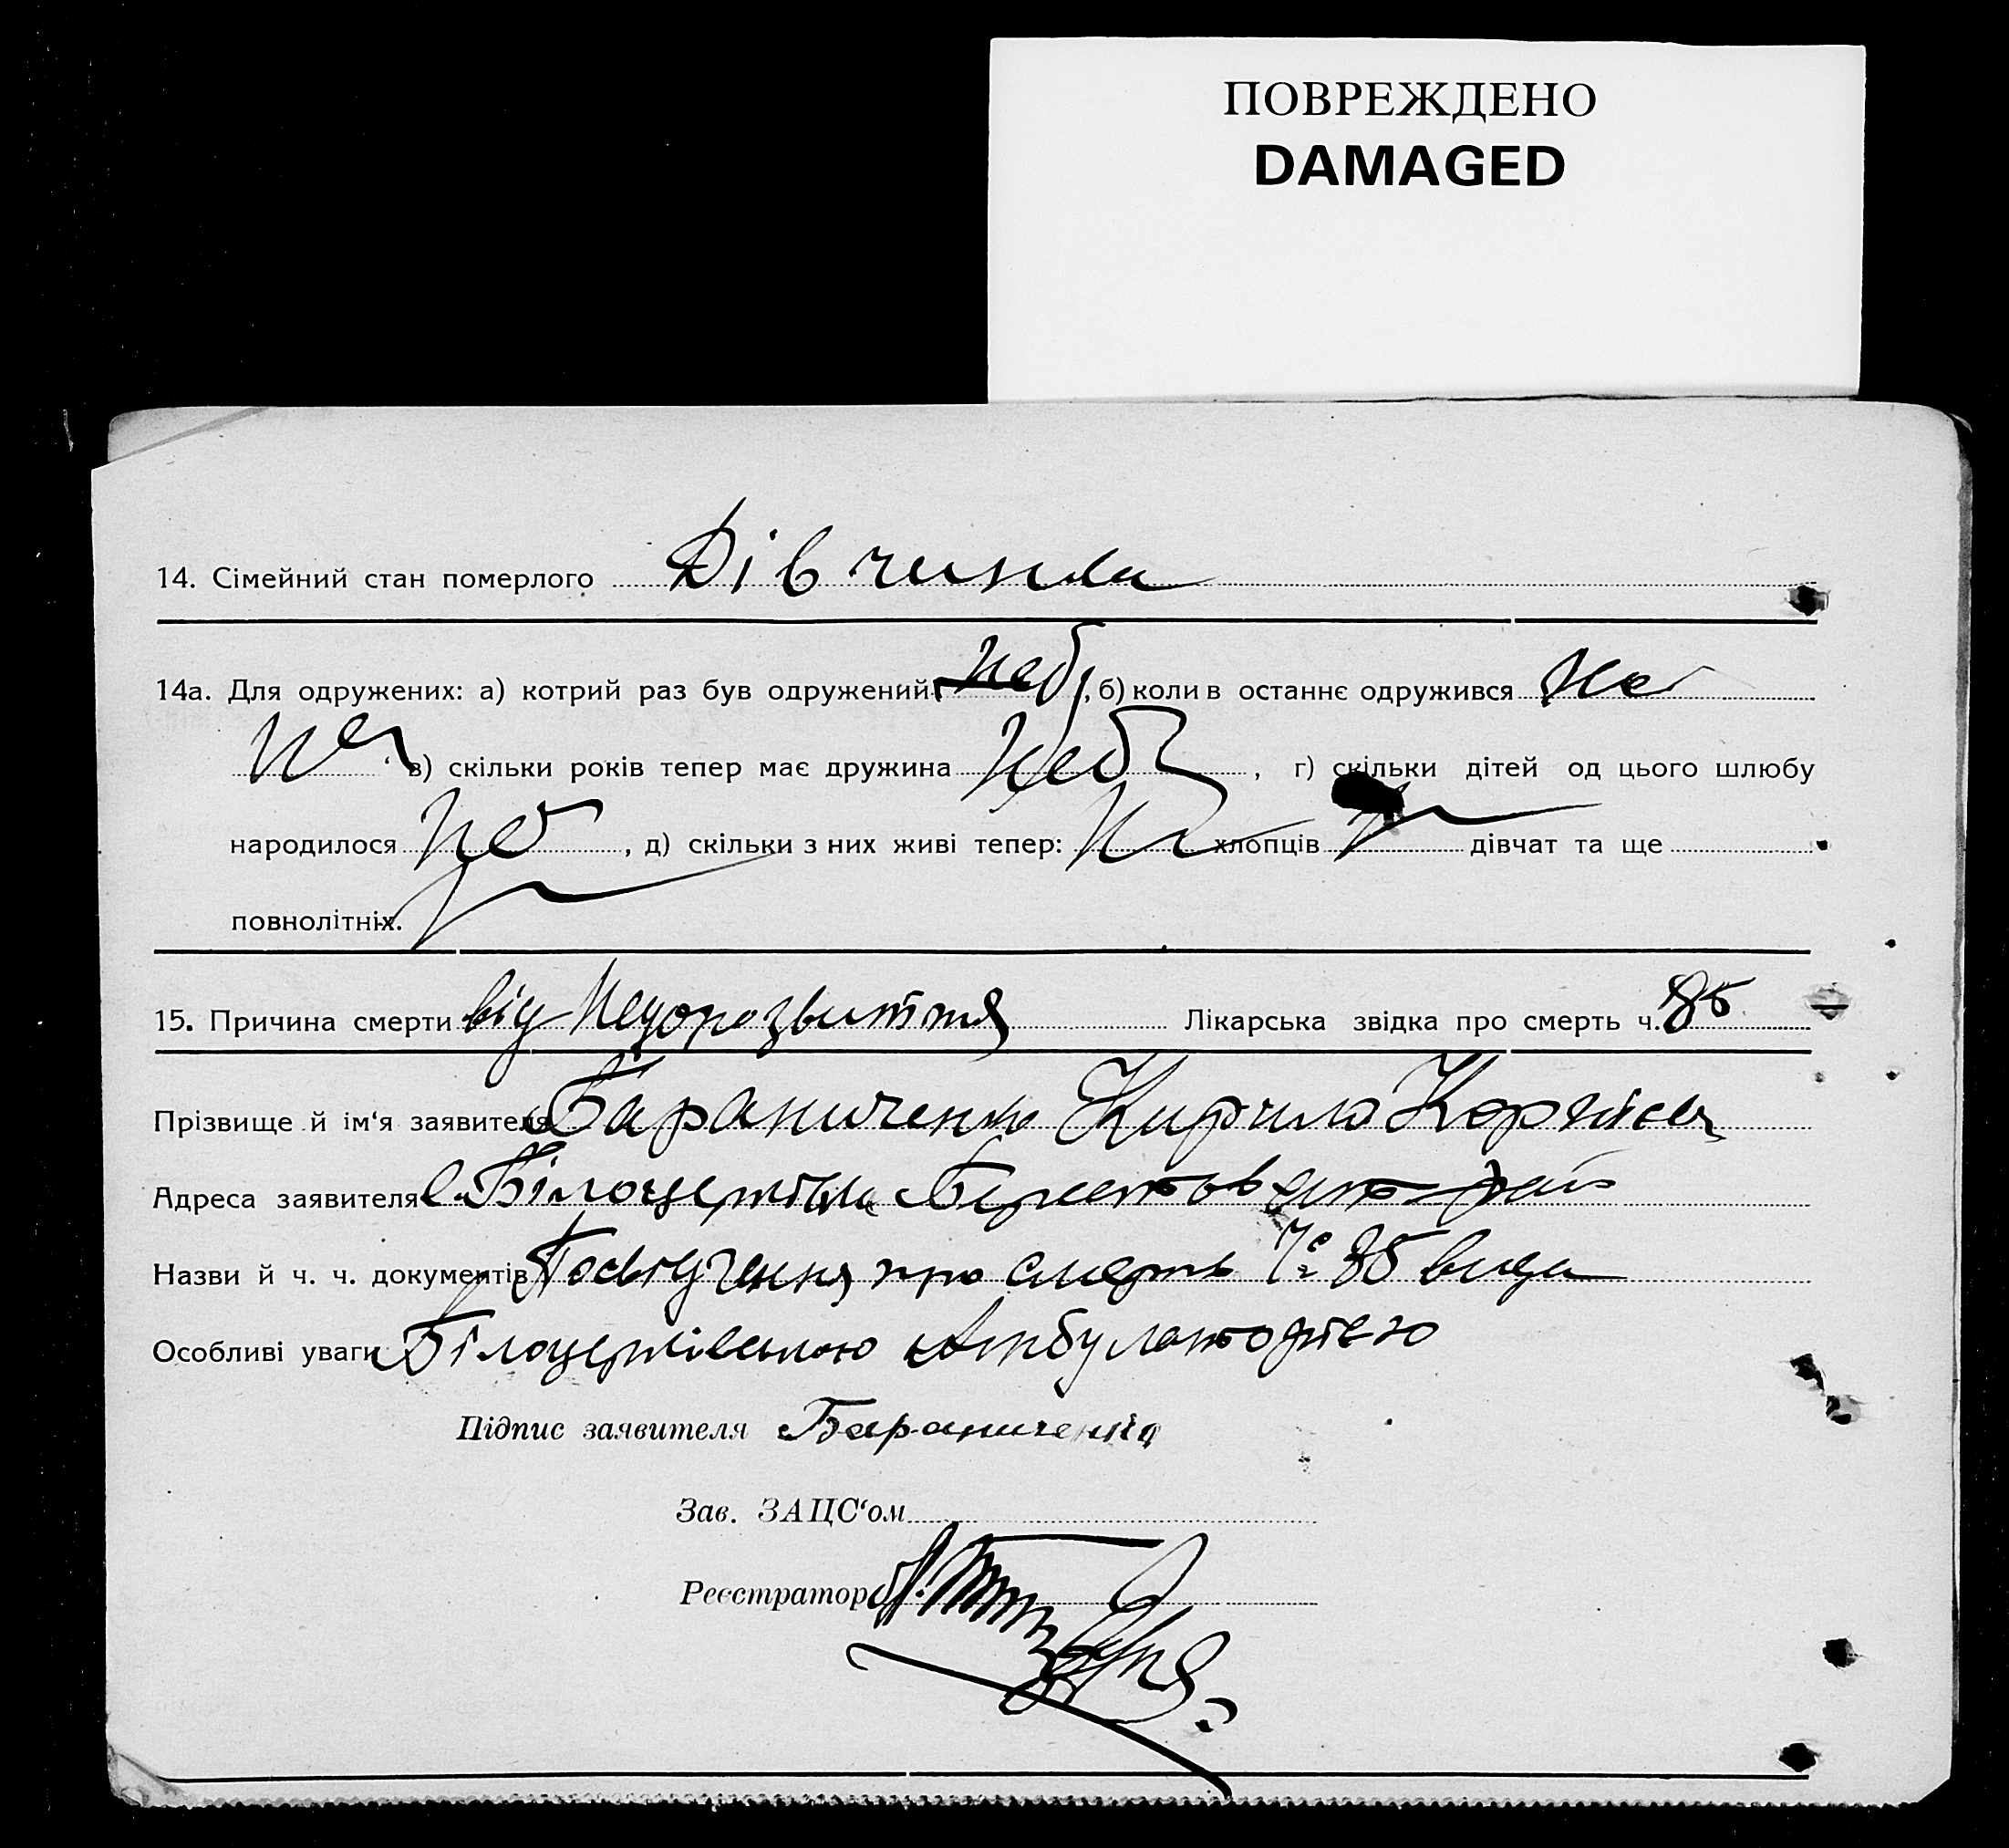 ПОВРЕЖДЕНО
DAMAGED
14. Сімейний стан померлого Дівчинка
14а. Для одружених: а) котрий раз був одружений Неб, б) коли в останнє одружився Не
Не в) скільки років тепер має дружина Неб, г) скільки дітей од цього шлюбу
народилося Неб, д) скільки з них живі тепер: Не хлопців дівчат та ще
повнолітніх.
15. Причина смерти від Недорозвиття Лікарська звідка про смерть ч. 85
Прізвище й ім‘я заявителя Бараниченко Кирило Корнієв
Адреса заявителя с. Білоцерківка рай
Назви й ч. ч. документів Посвідчення про смерть № 85 вида
Особливі уваги Білоцерківською Амбулаторією
Підпис заявителя Бараниченко
Зав. ЗАЦС‘ом
Реєстратор